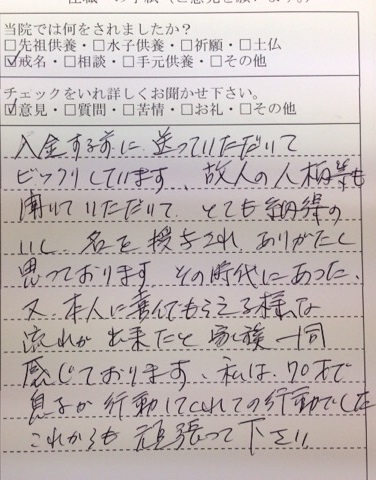 当院では何をされましたか?
□先祖供養・□水子供養・□祈願・□土仏
☑戒名・□相談・□手元供養・□その他
チェックをいれ詳しくお聞かせ下さい。
☑意見・□質問・□苦情・□お礼・□その他
入金する前に送っていただいて
ビックリしています、故人の人柄等も
聞いていただいて とても納得の
いく 名を授与され ありがたく
思っております その時代にあった、
又 本人に喜んでもらえる様な
流れが出来たと 家族一同
感じております、私は、70才で
息子が行動してくれての行動でした
これからも 頑張って下さい